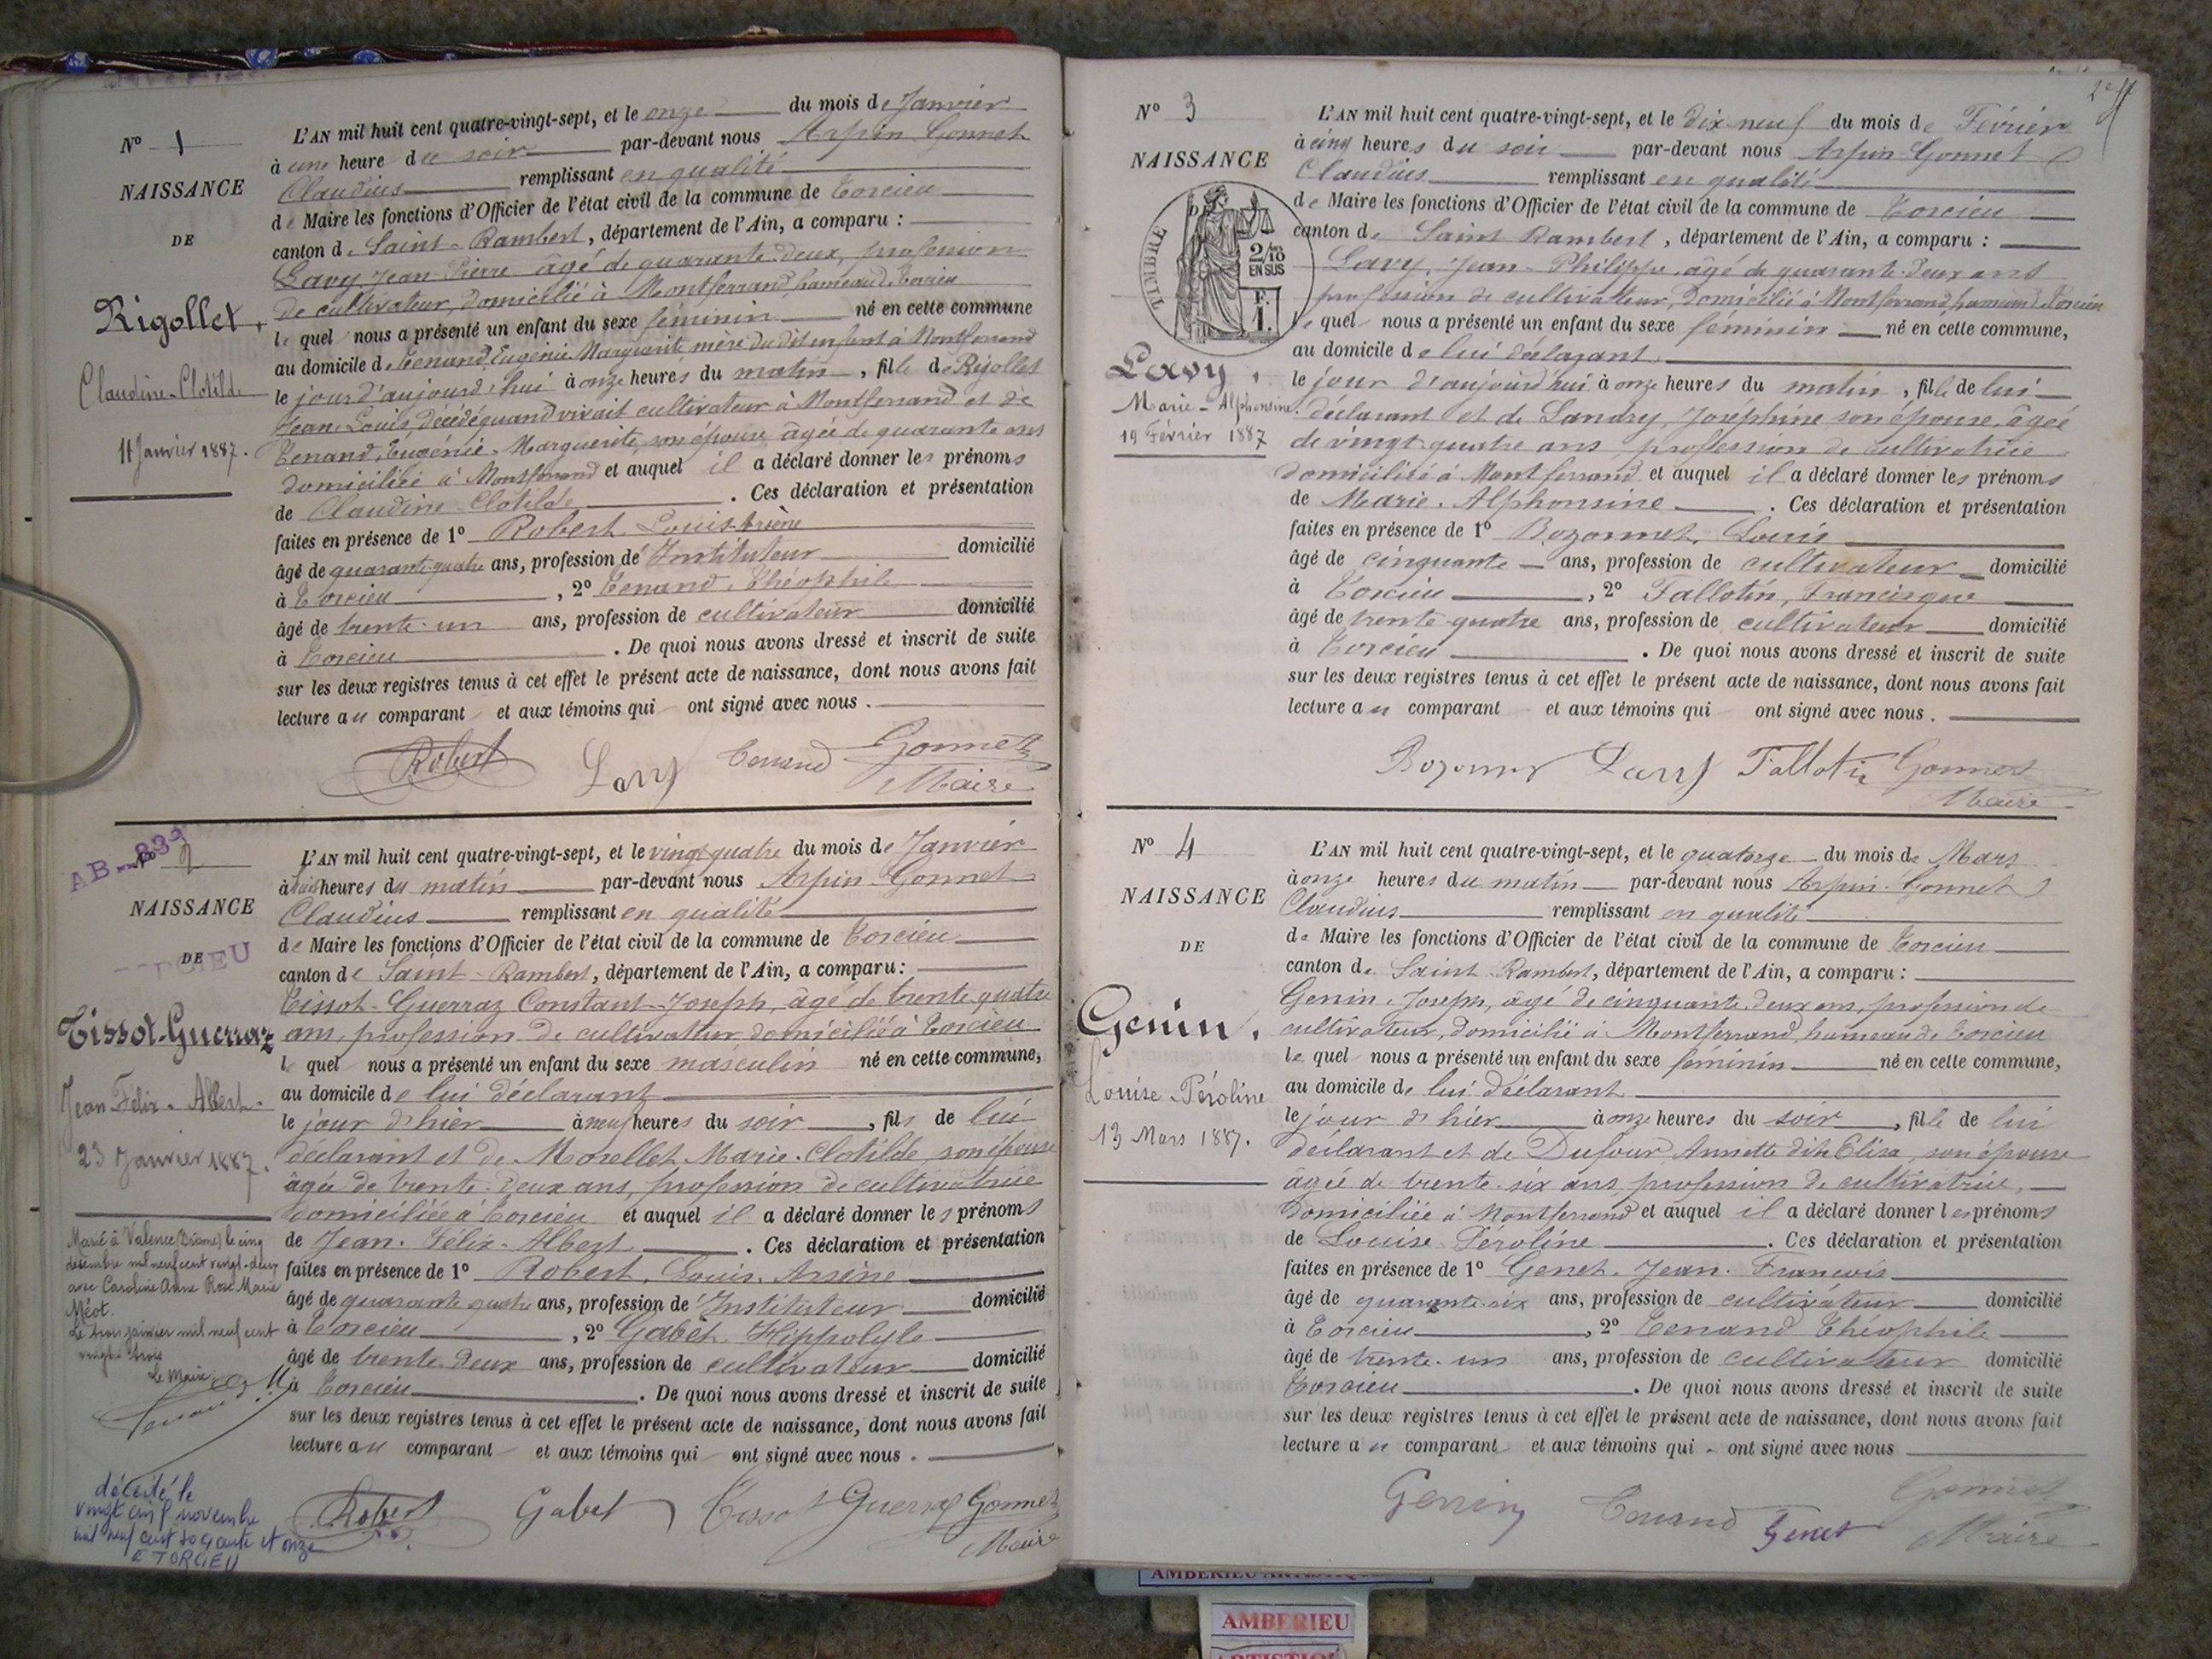 Nº 1
NAISSANCE
DE
Rigollet,
Claudine-Clotilde
11 Janvier 1887.
L'AN mil huit cent quatre-vingt-sept, et le onze du mois de Janvier
à une heure du soir par-devant nous Arpin Gonnet
Claudius remplissant en qualité
de Maire les fonctions d'Officier de l'état civil de la commune de Torcieu
canton de Saint-Rambert, département de l'Ain, a comparu :
Lavy, Jean-Pierre âgé de quarante-deux, profession
de cultivateur, domicilié à Montferrand, hameau de Torcieu
le quel nous a présenté un enfant du sexe féminin né en cette commune
au domicile de Tenand, Eugénie Marguerite, mère du dit enfant à Montferrand
le jour d'aujourd'hui à onze heures du matin, fille de Rigollet
Jean-Louis, décédé quand vivait cultivateur à Montferrand et de
Tenand, Eugénie-Marguerite, son épouse âgée de quarante ans
domiciliée à Montferrand et auquel il a déclaré donner les prénoms
de Claudine-Clotilde. Ces déclaration et présentation
faites en présence de 1º Robert, Louis-Arsène
âgé de quarante-quatre ans, profession de Instituteur domicilié
à Torcieu, 2º Tenand, Théophile
âgé de trente-un ans, profession de cultivateur domicilié
à Torcieu. De quoi nous avons dressé et inscrit de suite
sur les deux registres tenus à cet effet le présent acte de naissance, dont nous avons fait
lecture au comparant et aux témoins qui ont signé avec nous.
Robert Lavy Tenand Gonnet
Maire
AB 833
Nº 2
NAISSANCE
DE
Tissot-Guerraz
Jean-Félix-Albert.
23 Janvier 1887.
Marié à Valence (Drôme) le cinq
décembre mil neuf cent vingt-deux
avec Caroline Anne Rose Marie
Méot.
Le trois janvier mil neuf cent
vingt-trois
Le Maire
Tenand
décédé le
vingt cinq novembre
mil neuf cent soixante et onze
à TORCIEU
L'AN mil huit cent quatre-vingt-sept, et le vingt quatre du mois de Janvier
à huit heures du matin par-devant nous Arpin-Gonnet
Claudius remplissant en qualité
de Maire les fonctions d'Officier de l'état civil de la commune de Torcieu
canton de Saint-Rambert, département de l'Ain, a comparu :
Tissot-Guerraz Constant-Joseph, âgé de trente quatre
ans, profession de cultivateur, domicilié à Torcieu
le quel nous a présenté un enfant du sexe masculin né en cette commune,
au domicile de lui déclarant
le jour d'hier à neuf heures du soir, fils de lui
déclarant et de Morellet Marie-Clotilde, son épouse
âgée de trente-deux ans, profession de cultivatrice
domiciliée à Torcieu et auquel il a déclaré donner les prénoms
de Jean-Félix-Albert. Ces déclaration et présentation
faites en présence de 1º Robert, Louis, Arsène
âgé de quarante quatre ans, profession de Instituteur domicilié
à Torcieu, 2º Gabet, Hippolyte
âgé de trente-deux ans, profession de cultivateur domicilié
à Torcieu. De quoi nous avons dressé et inscrit de suite
sur les deux registres tenus à cet effet le présent acte de naissance, dont nous avons fait
lecture au comparant et aux témoins qui ont signé avec nous.
Robert Gabet Tissot Guerraz Gonnet
Maire
Nº 3
NAISSANCE
TIMBRE
2/10
EN SUS
F.
1.
Lavy,
Marie-Alphonsine.
19 Février 1887
L'AN mil huit cent quatre-vingt-sept, et le dix-neuf du mois de Février
à cinq heures du soir par-devant nous Arpin-Gonnet
Claudius remplissant en qualité
de Maire les fonctions d'Officier de l'état civil de la commune de Torcieu
canton de Saint Rambert, département de l'Ain, a comparu :
Lavy, Jean-Philippe, âgé de quarante-deux ans
profession de cultivateur, domicilié à Montferrand, hameau de Torcieu
le quel nous a présenté un enfant du sexe féminin né en cette commune,
au domicile de lui déclarant
le jour d'aujourd'hui à onze heures du matin, fille de lui
déclarant et de Landry, Joséphine son épouse, âgée
de vingt-quatre ans, profession de cultivatrice
domiciliée à Montferrand et auquel il a déclaré donner les prénoms
de Marie-Alphonsine. Ces déclaration et présentation
faites en présence de 1º Bozonnet, Louis
âgé de cinquante ans, profession de cultivateur domicilié
à Torcieu, 2º Tallotin, Francisque
âgé de trente-quatre ans, profession de cultivateur domicilié
à Torcieu. De quoi nous avons dressé et inscrit de suite
sur les deux registres tenus à cet effet le présent acte de naissance, dont nous avons fait
lecture au comparant et aux témoins qui ont signé avec nous.
Bozonnet Lavy Tallotin Gonnet
Maire
Nº 4
NAISSANCE
DE
Genin,
Louise-Péroline
13 Mars 1887.
L'AN mil huit cent quatre-vingt-sept, et le quatorze du mois de Mars
à onze heures du matin par-devant nous Arpin-Gonnet
Claudius remplissant en qualité
de Maire les fonctions d'Officier de l'état civil de la commune de Torcieu
canton de Saint-Rambert, département de l'Ain, a comparu :
Genin, Joseph, âgé de cinquante-deux ans, profession de
cultivateur, domicilié à Montferrand, hameau de Torcieu
le quel nous a présenté un enfant du sexe féminin né en cette commune,
au domicile de lui déclarant
le jour d'hier à onze heures du soir, fille de lui
déclarant et de Dufour, Annette dite Elisa, son épouse
âgée de trente-six ans, profession de cultivatrice,
domiciliée à Montferrand et auquel il a déclaré donner les prénoms
de Louise Péroline. Ces déclaration et présentation
faites en présence de 1º Genet, Jean-François
âgé de quarante-six ans, profession de cultivateur domicilié
à Torcieu, 2º Tenand Théophile
âgé de trente-un ans, profession de cultivateur domicilié
Torcieu. De quoi nous avons dressé et inscrit de suite
sur les deux registres tenus à cet effet le présent acte de naissance, dont nous avons fait
lecture au comparant et aux témoins qui ont signé avec nous
Genin Tenand Genet Gonnet
Maire
AMBERIEU